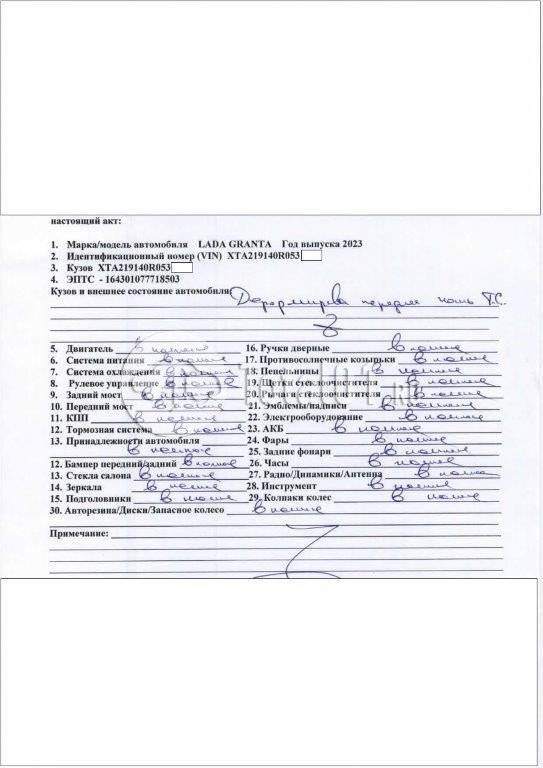 настоящий акт:
1. Марка/модель автомобиля LADA GRANTA Год выпуска 2023
2. Идентификационный номер (VIN) XTA219140R053
3. Кузов XTA219140R053
4. ЭПТС - 164301077718503
Кузов и внешнее состояние автомобиля: передняя часть Т.С.
5. Двигатель в наличие
6. Система питания в наличие
7. Система охлаждения в наличие
8 Рулевое управление в наличие
9. Задний мост в наличие
10. Передний мост в наличие
11. КПП в наличие
12. Тормозная система в наличие
13. Принадлежности автомобиля
в наличие
12. Бампер передний/задний в наличие
13. Стекла салона в наличие
14. Зеркала в наличие
15. Подголовники в наличие
16. Ручки дверные в наличие
17. Противосолнечные козырьки в наличие
18. Пепельницы в наличие
19. Щетки стеклоочистителя в наличие
20. Рычаги стеклоочистителя в наличие
21. Эмблемы/надписи в наличие
22. Электрооборудование в наличие
23. АКБ в наличие
24. Фары в наличие
25. Задние фонари в наличие
26. Часы в наличие
27. Радио/Динамики/Антенна в наличие
28. Инструмент в наличие
29. Колпаки колес в наличие
30. Авторезина/Диски/Запасное колесо в наличие
Примечание: